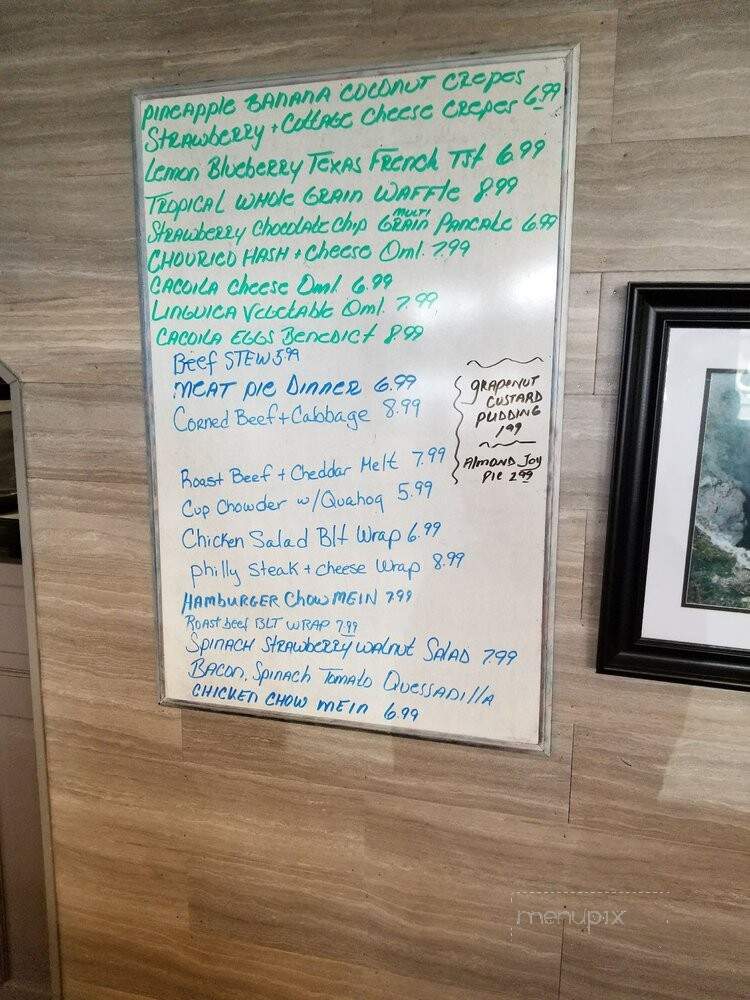 PINEAPPLE BANANA COCONUT CREPES
STRAWBERRY + COTTAGE CHEESE CREPES 6.99
LEMON BLUEBERRY TEXAS FRENCH TST 6.99
TROPICAL WHOLE GRAIN WAFFLE 8.99
STRAWBERRY CHOCOLATE CHIP MULTI GRAIN PANCAKE 6.99
CHOURICO HASH + CHEESE OML. 7.99
CACOILA CHEESE OML. 6.99
LINGUICA VEGETABLE OML. 7.99
CACOILA EGGS BENEDICT 8.99
Beef STEW 5.99
MEAT PIE DINNER 6.99
Corned Beef + Cabbage 8.99
GRAPENUT
CUSTARD
PUDDING
1.99
ALMOND JOY
PIE 2.99
Roast Beef + Cheddar Melt 7.99
Cup Chowder w/Quahog 5.99
Chicken Salad Blt Wrap 6.99
Philly Steak + cheese Wrap 8.99
HAMBURGER CHOW MEIN 7.99
Roast beef BLT WRAP 7.99
SPINACH STRAWBERRY WALNUT SALAD 7.99
BACON, Spinach Tomato Quessadilla
CHICKEN CHOW MEIN 6.99
menupix